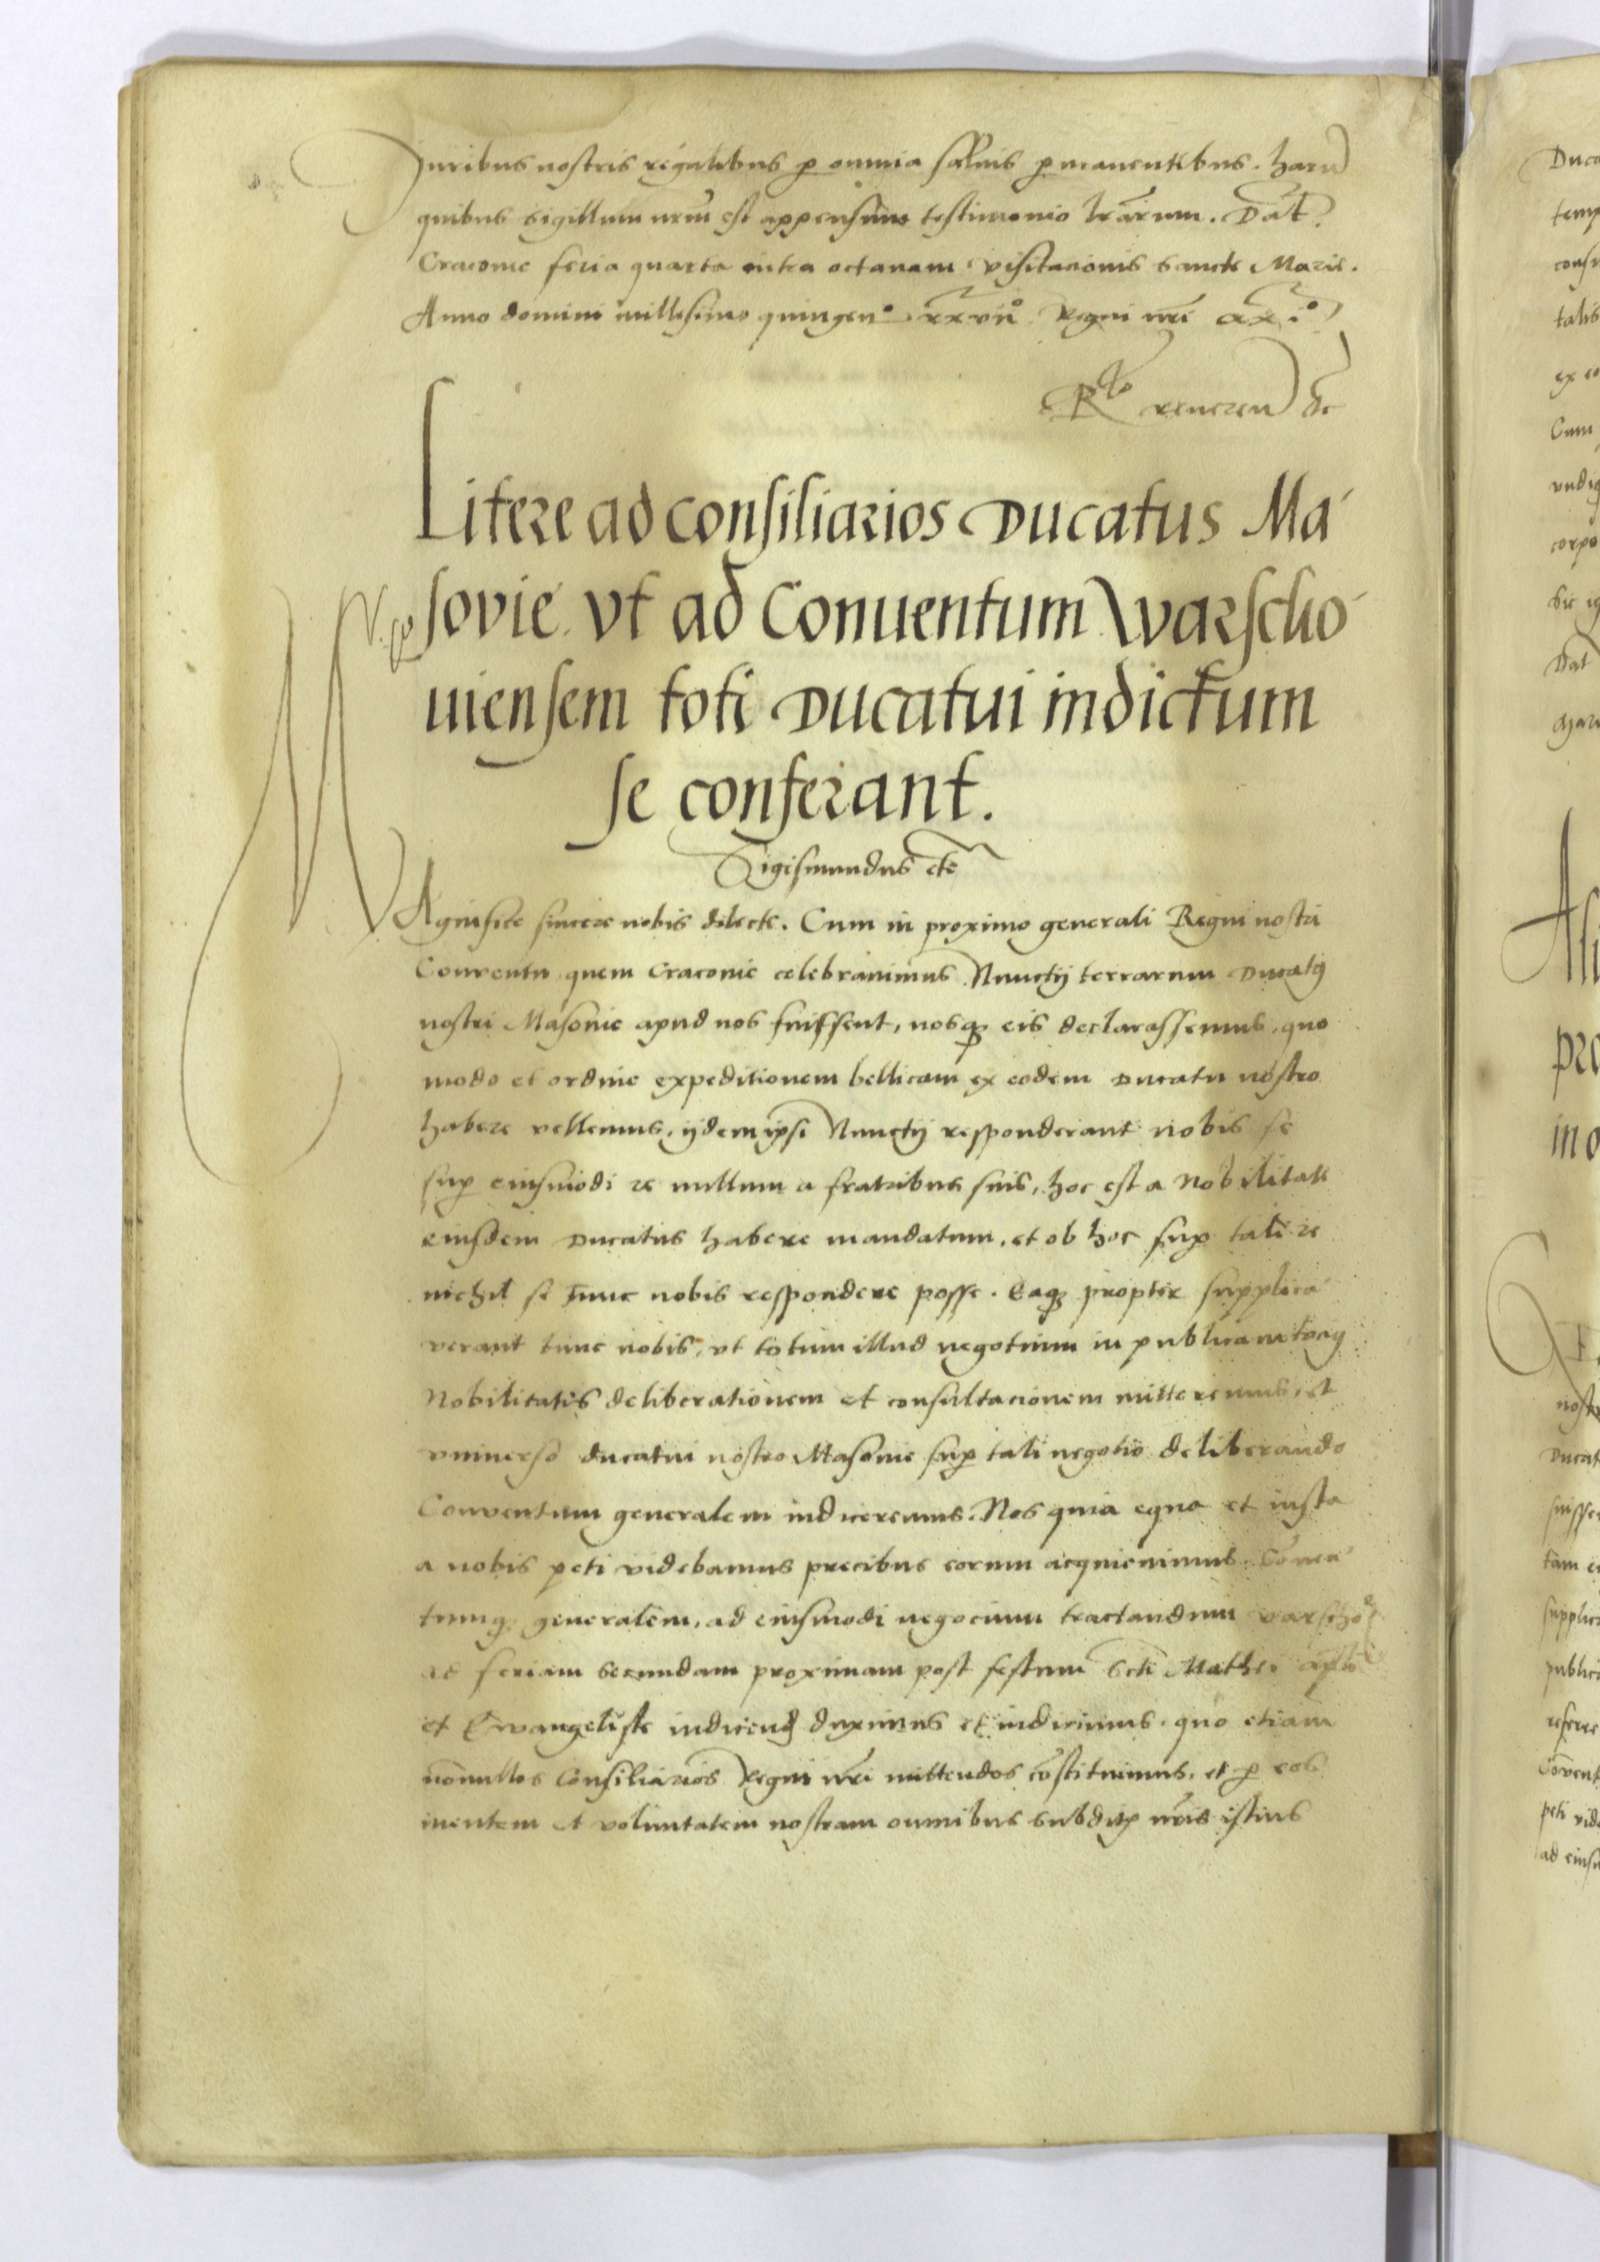 Juribus nostris regalibus p omnia saluis pmanentibus. haru
quibus sigillum nrm̃ est appensum testimonio lrarum. Dat̃
Cracouie feria quarta intra octauam visitacionis sancte Marie.
Anno domini millesimo quingen° xxvii° Regni nrĩ xxi°
Rto reueren
Litere ad consiliarios Ducatus Ma
souie vt ad Conuentum Warscho
uiensem toti Ducatui indictum
se conferant.
Sigismundus etc̃
MAgnifice sincere nobis dilecte. Cum in proximo generali Regni nostri
Conuentu quem Cracouie celebrauimus Nunctij terrarum Ducatꝯ
nostri Masouie apud nos fuissent, nosqꝫ eis declarassemus, quo
modo et ordine expeditionem bellicam ex eodem Ducatu nostro
habere vellemus, ijdem ipsi Nunctij responderant nobis se
sup eiusmodi re nullum a fratribus suis, hoc est a Nobilitate
eiusdem Ducatus habere mandatum, et ob hoc sup tali re
nichil se tunc nobis respondere posse. Eaqꝫ propter supplica
verant tunc nobis, vt totum illud negotium in publicam totiꝯ
Nobilitatis deliberationem et consultacionem mitteremus, et
vniuerso ducatui nostro Masouie sup tali negotio deliberando
Conuentum generalem indiceremus. Nos quia equa et iusta
a nobis peti videbamus precibus eorum acquieuimus. Cõuen
tumqꝫ generalem, ad eiusmodi negocium tractandum Varscho
ad feriam secundam proximam post festum Scti Mathei apli
et Ewangeliste indicend duximus et indicimus. quo etiam
nõnullos Consiliarios Regni nrĩ mittendos cõstituimus, et p eos
mentem et voluntatem nostram omnibus subditꝭ nrĩs istius